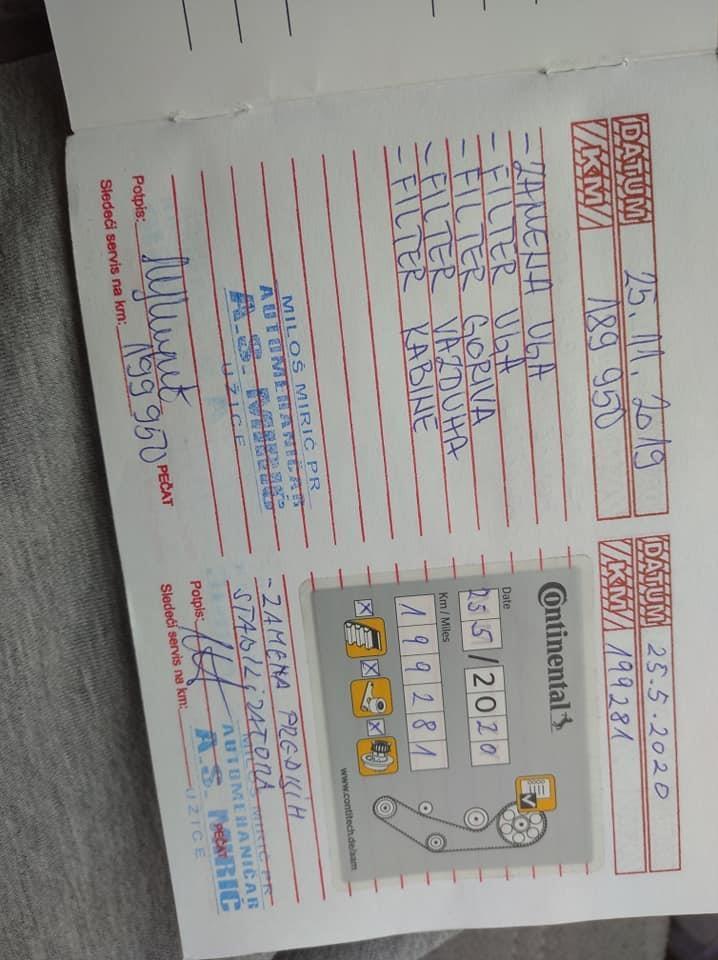 DATUM 25. 11. 2019
KM 189 950
- ZAMENA UGA
- FILTER UGA
- FILTER GORIVA
- FILTER VAZDUHA
- FILTER KABINE
MILOŠ MIRIĆ PR
AUTOMEHANIČAR
UŽICE
Potpis:
PEČAT
Sledeći servis na km: 199 950
DATUM 25.5.2020
KM 199281
Continental
Date
25 5 / 20 20
Km / Miles
199281
www.contitech.de/aam
- ZAMENA PREDNJIH
STABILIZATORA
MILOŠ MIRIĆ PR
AUTOMEHANIČAR
A.S MIRIĆ
UŽICE
Potpis:
PEČAT
Sledeći servis na km: